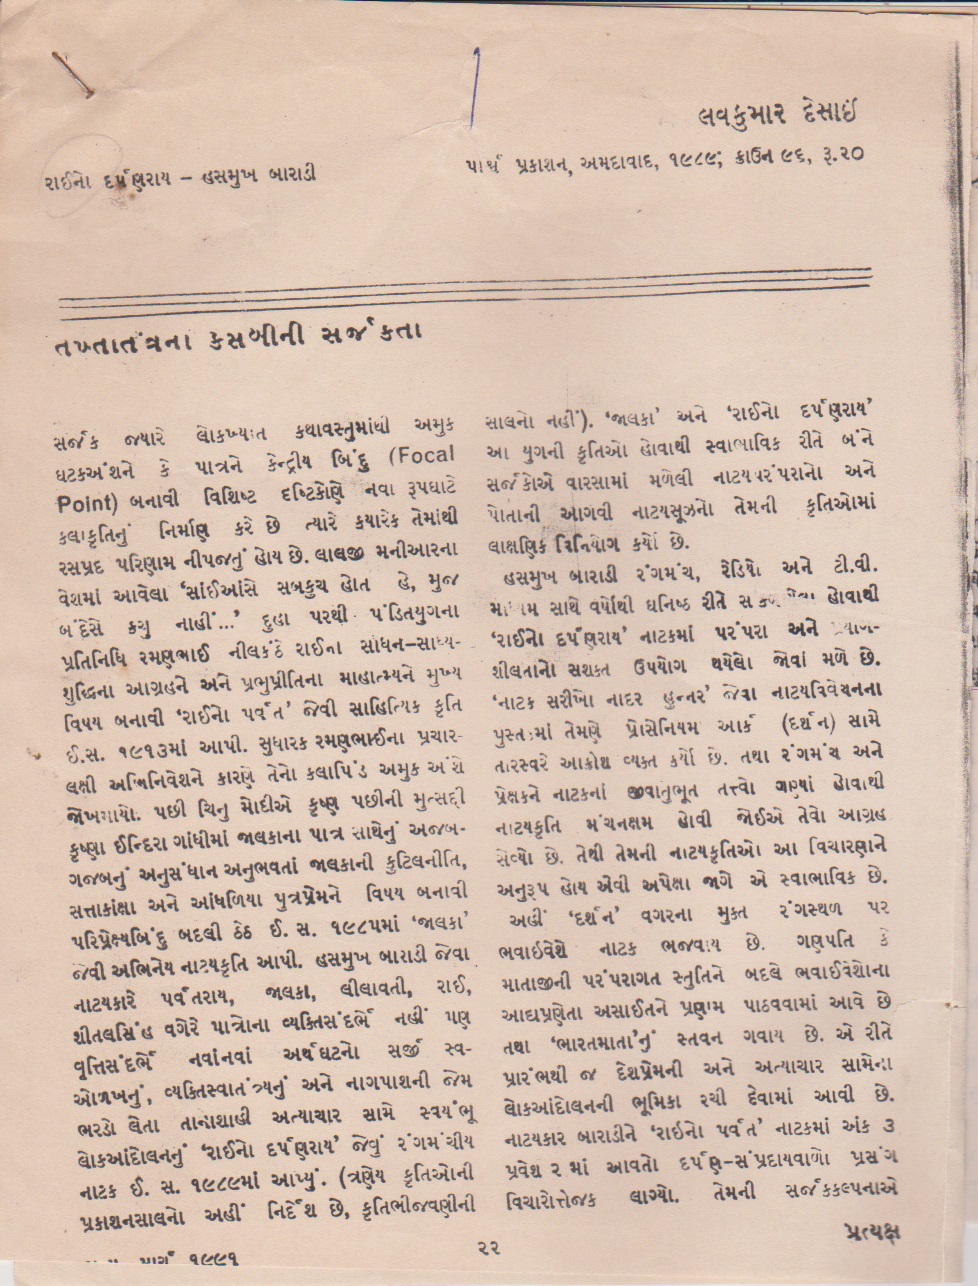 લવકુમાર દેસાઈ
રાઈનો દર્પણરાય – હસમુખ બારાડી
પાર્શ્વ પ્રકાશન, અમદાવાદ, ૧૯૮૯; ક્રાઉન ૯૬, રૂ.૨૦
તખ્તાતંત્રના કસબીની સર્જકતા
સર્જક જ્યારે લોકખ્યાત કથાવસ્તુમાંથી અમુક
ઘટકઅંશને કે પાત્રને કેન્દ્રીય બિંદુ (Focal
Point) બનાવી વિશિષ્ટ દષ્ટિકોણે નવા રૂપઘાટે
કલાકૃતિનું નિર્માણ કરે છે ત્યારે કયારેક તેમાંથી
રસપ્રદ પરિણામ નીપજતું હોય છે. લાલજી મનીઆરના
વેશમાં આવેલા ‘સાંઈઆંસે સબકુચ હોત હે, મુજ
બંદેસે કચુ નાહીં...’ દુહા પરથી પંડિતયુગના
પ્રતિનિધિ રમણભાઈ નીલકંઠે રાઈના સાધન–સાધ્ય-
શુદ્ધિના આગ્રહને અને પ્રભુપ્રીતિના માહાત્મ્યને મુખ્ય
વિષય બનાવી ‘રાઈનો પર્વત’ જેવી સાહિત્યિક કૃતિ
ઈ.સ. ૧૯૧૩માં આપી. સુધારક રમણભાઈના પ્રચાર-
લક્ષી અભિનિવેશને કારણે તેનો કલાપિંડ અમુક અંશે
જોખમાયો. પછી ચિનુ મોદીએ કૃષ્ણ પછીની મુત્સદ્દી
કૃષ્ણા ઈન્દિરા ગાંધીમાં જાલકાના પાત્ર સાથેનું અજબ-
ગજબનું અનુસંધાન અનુભવતાં જાલકાની કુટિલનીતિ,
સત્તાકાંક્ષા અને આંધળિયા પુત્રપ્રેમને વિષય બનાવી
પરિપ્રેક્ષ્યબિંદુ બદલી ઠેઠ ઈ. સ. ૧૯૮૫માં ‘જાલકા’
જેવી અભિનેય નાટ્યકૃતિ આપી. હસમુખ બારાડી જેવા
નાટયકારે પર્વતરાય, જાલકા, લીલાવતી, રાઈ,
શીતલસિંહ વગેરે પાત્રોના વ્યક્તિસંદર્ભે નહીં પણ
વૃત્તિસંદર્ભે નવાંનવાં અર્થઘટનો સર્જી સ્વ-
ઓળખનું, વ્યક્તિસ્વાતંત્ર્યનું અને નાગપાશની જેમ
ભરડો લેતા તાનાશાહી અત્યાચાર સામે સ્વયંભૂ
લોકઆંદોલનનું ‘રાઈનો દર્પણરાય’ જેવું રંગમંચીય
નાટક ઈ. સ. ૧૯૮૯માં આપ્યું. (ત્રણેય કૃતિઓની
પ્રકાશનસાલનો અહીં નિર્દેશ છે, કૃતિભીજવણીની
સાલનો નહીં). ‘જાલકા’ અને ‘રાઈનો દર્પણરાય’
આ યુગની કૃતિઓ હોવાથી સ્વાભાવિક રીતે બંને
સર્જકોએ વારસામાં મળેલી નાટયપરંપરાનો અને
પોતાની આગવી નાટયસૂઝનો તેમની કૃતિઓમાં
લાક્ષણિક વિનિયોગ કર્યો છે.
હસમુખ બારાડી રંગમંચ, રેડિયો અને ટી.વી.
માધ્યમ સાથે વર્ષોથી ઘનિષ્ઠ રીતે હોવાથી
‘રાઈનો દર્પણરાય’ નાટકમાં પરંપરા અને પ્રયોગ-
શીલતાનો સશક્ત ઉપયોગ થયેલો જોવાં મળે છે.
‘નાટક સરીખો નાદર હુન્નર’ જેવા નાટયવિવેચનના
પુસ્તકમાં તેમણે પ્રોસેનિયમ આર્ક (દર્શન) સામે
તારસ્વરે આક્રોશ વ્યક્ત કર્યો છે. તથા રંગમંચ અને
પ્રેક્ષકને નાટકનાં જીવાતુભૂત તત્ત્વો ગણ્યાં હોવાથી
નાટયકૃતિ મંચનક્ષમ હોવી જોઈએ તેવો આગ્રહ
સેવ્યો છે. તેથી તેમની નાટયકૃતિઓ આ વિચારણાને
અનુરૂપ હોય એવી અપેક્ષા જાગે એ સ્વાભાવિક છે.
અહીં ‘દર્શન’ વગરના મુક્ત રંગસ્થળ પર
ભવાઇવેશે નાટક ભજવાય છે. ગણપતિ કે
માતાજીની પરંપરાગત સ્તુતિને બદલે ભવાઈવેશોના
આદ્યપ્રણેતા અસાઈતને પ્રણામ પાઠવવામાં આવે છે
તથા ‘ભારતમાતા’નું સ્તવન ગવાય છે. એ રીતે
પ્રારંભથી જ દેશપ્રેમની અને અત્યાચાર સામેના
લોકઆંદોલનની ભૂમિકા રચી દેવામાં આવી છે.
નાટયકાર બારાડીને ‘રાઇનો પર્વત’ નાટકમાં અંક ૩
પ્રવેશ ૨ માં આવતો દર્પણ–સંપ્રદાયવાળો પ્રસંગ
વિચારોત્તેજક લાગ્યો. તેમની સર્જકકલ્પનાએ
પ્રત્યક્ષ
૨૨
માર્ચ ૧૯૯૧